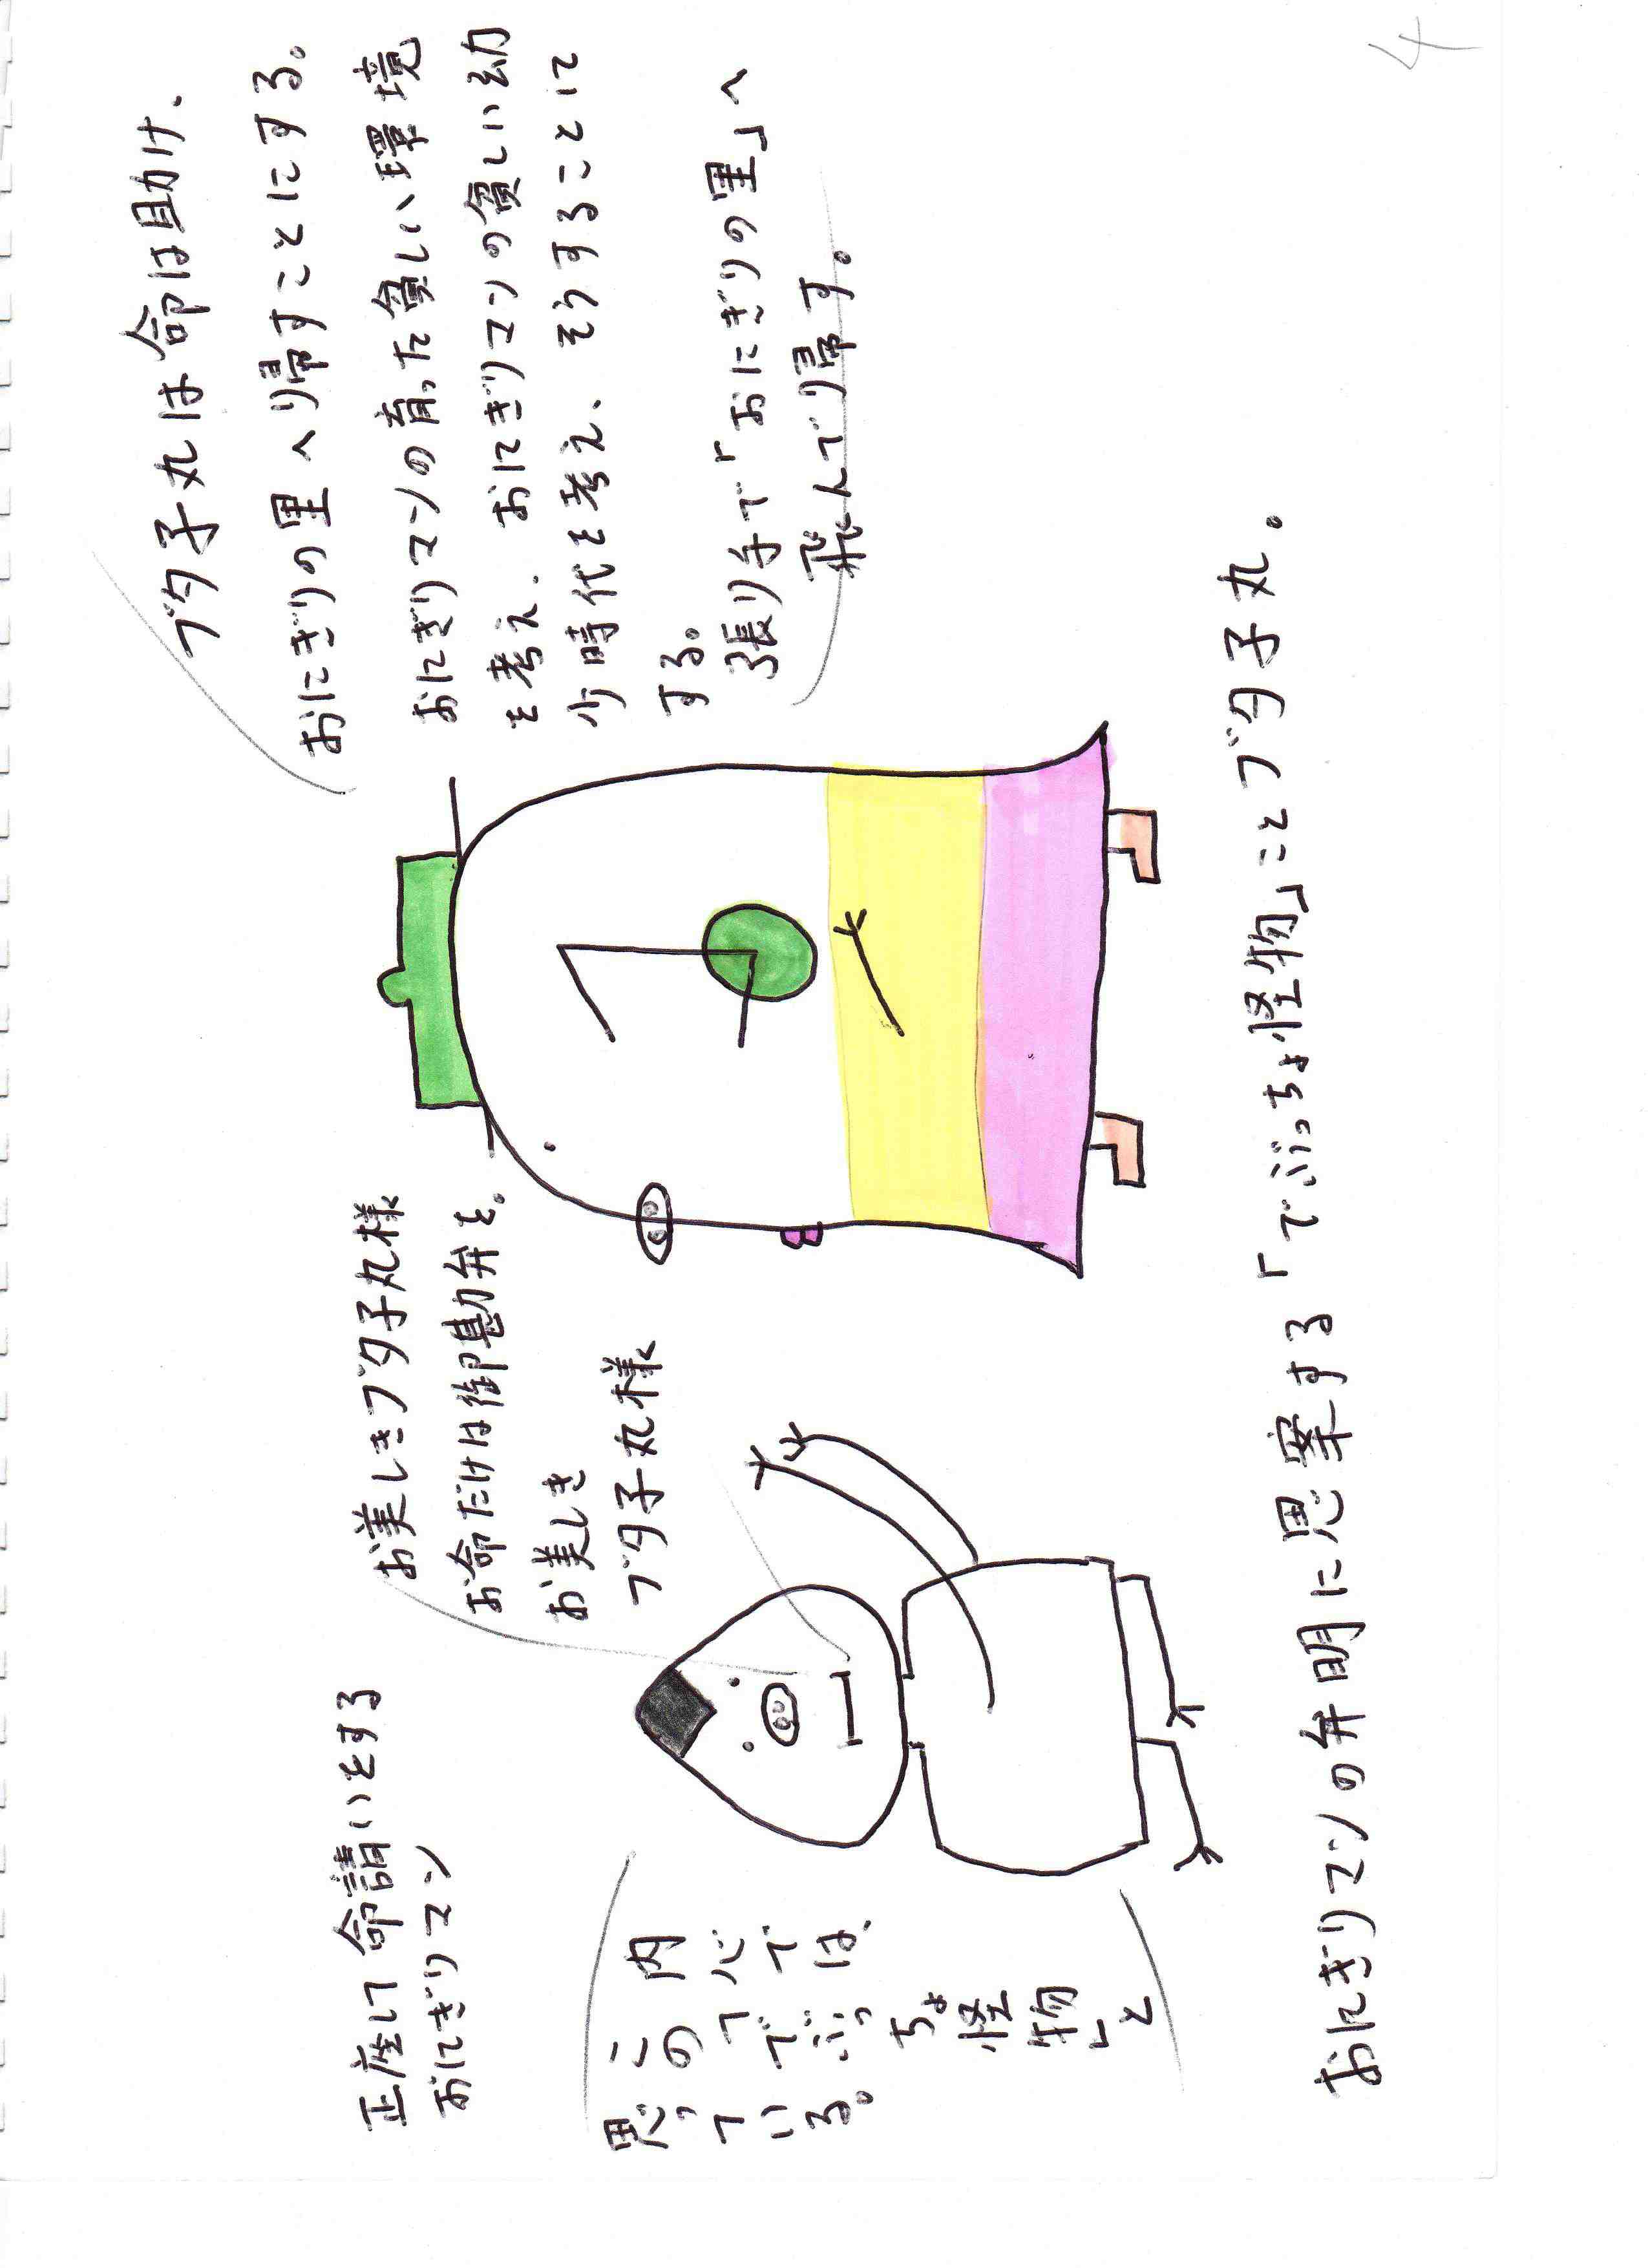 正座して命請いをする
おにぎりマン
お美しきブタ子丸様
お命だけは御勘弁を。
お美しき
ブタ子丸様
ブタ子丸は命は助け、
おにぎりの里へ帰すことにする。
おにぎりマンの育った貧しい環境
を考え、おにぎりマンの貧しい幼
少時代を考え、そうすることに
する。
張り手で「おにぎりの里」へ
飛んで帰す。
内心では、
この「でぶっちょ怪物」と
思っている。
おにぎりマンの弁明に思案する「でぶっちょ怪物」ことブタ子丸。
4